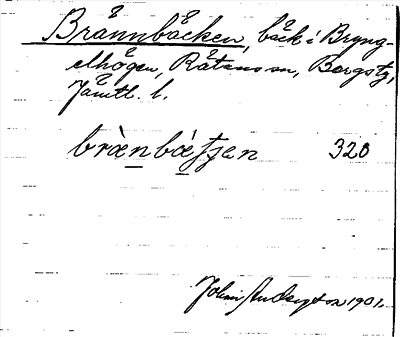 Brännbäcken, bäck i Bryng-
elhögen, Rätans sn, Bergs tg,
Jämtl. l.
bræ̀nbæ̀tjen 320
John Anderzton 1901.